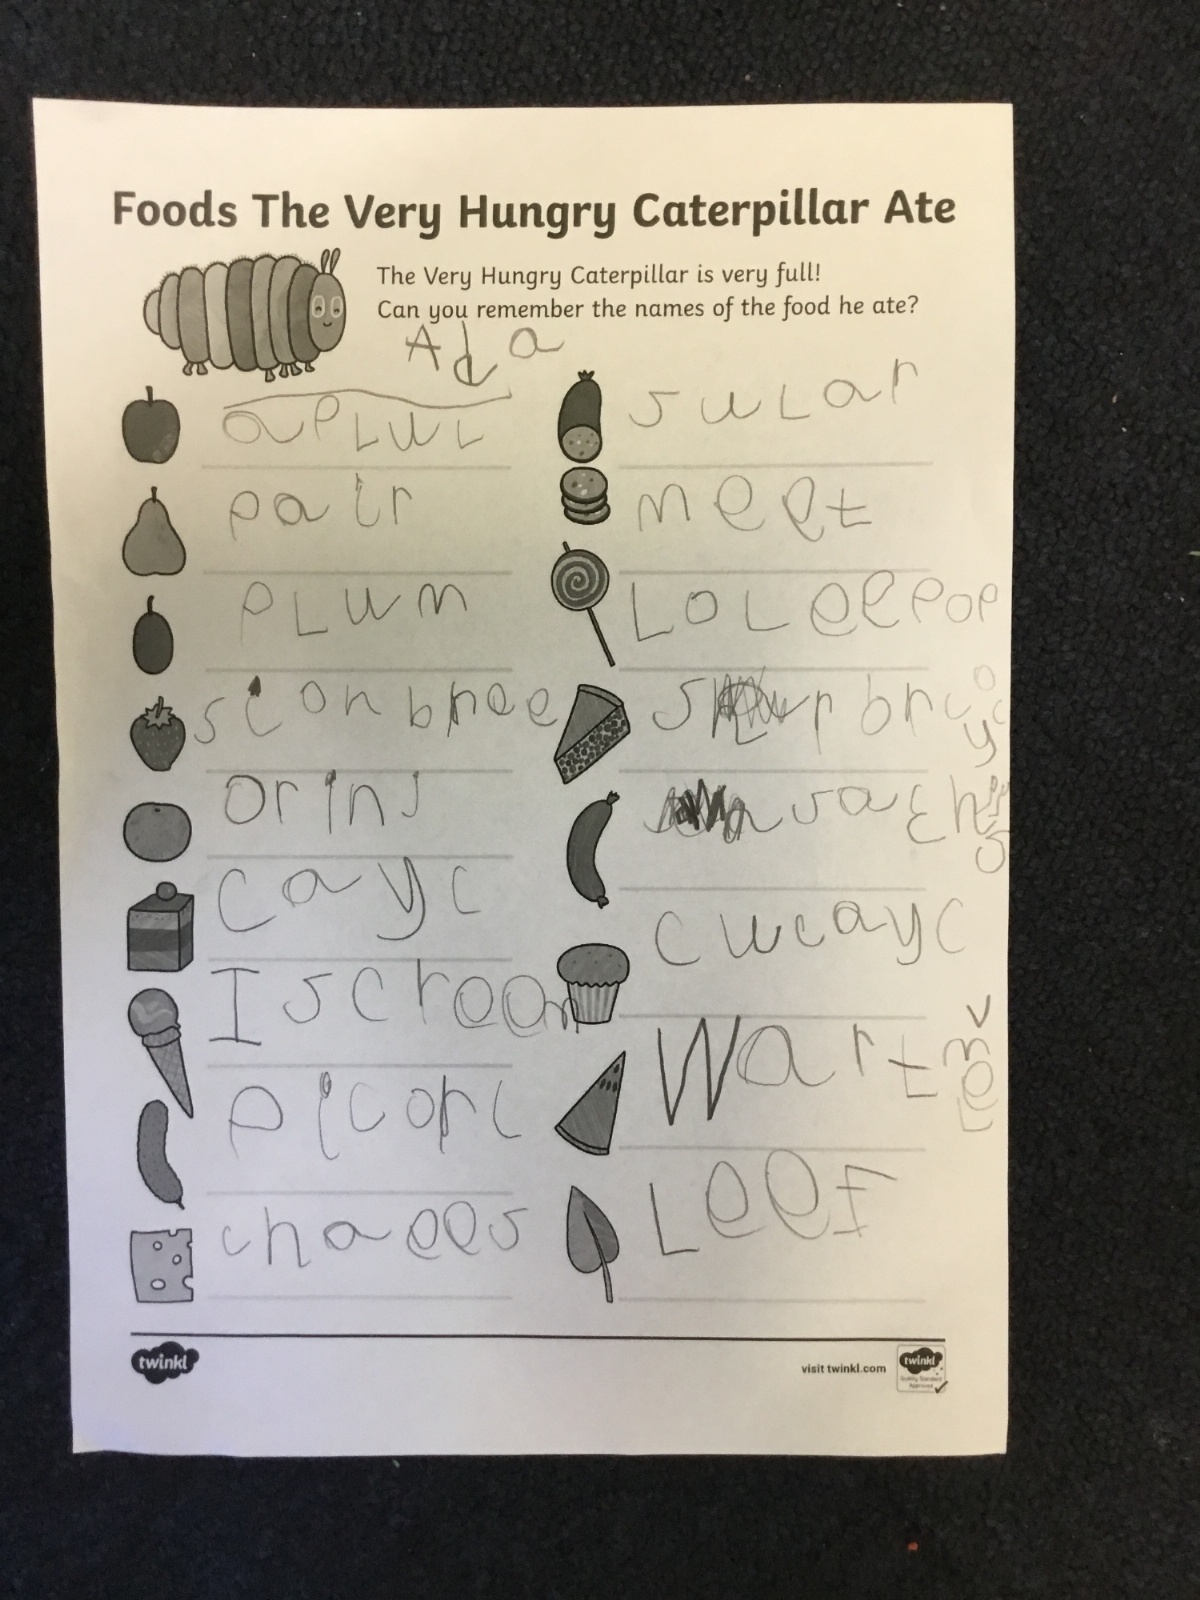 Foods The Very Hungry Caterpillar Ate
The Very Hungry Caterpillar is very full!
Can you remember the names of the food he ate?
Ada
apLuL
pair
pLum
orinj
cayc
Iscream
picorL
chaees
suLar
meet
LoLeepop
cucayc
Leef
twinkl
visit twinkl.com
twinkl
Quality Standard
Approved